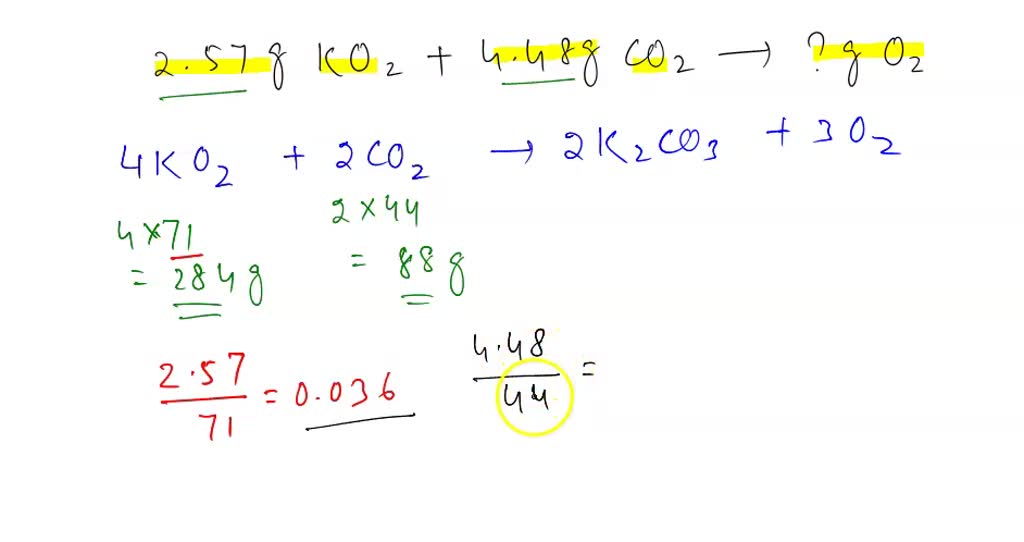 2.57g KO₂ + 4.48g CO₂ → ?g O₂
4KO₂ + 2CO₂ → 2K₂CO₃ + 3O₂
4×71 2×44
= 284g = 88g
2.57/71 = 0.036 4.48/44 =